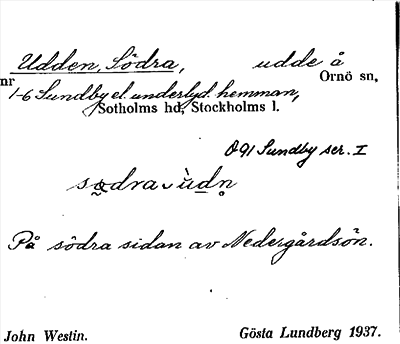 Udden, Södra, udde å
nr Ornö sn,
1-6 Sundby el. underlyd. hemman,
Sotholms hd, Stockholms l.
Ö 91 Sundby ser. I
På södra sidan av Nedergårdsön.
John Westin. Gösta Lundberg 1937.